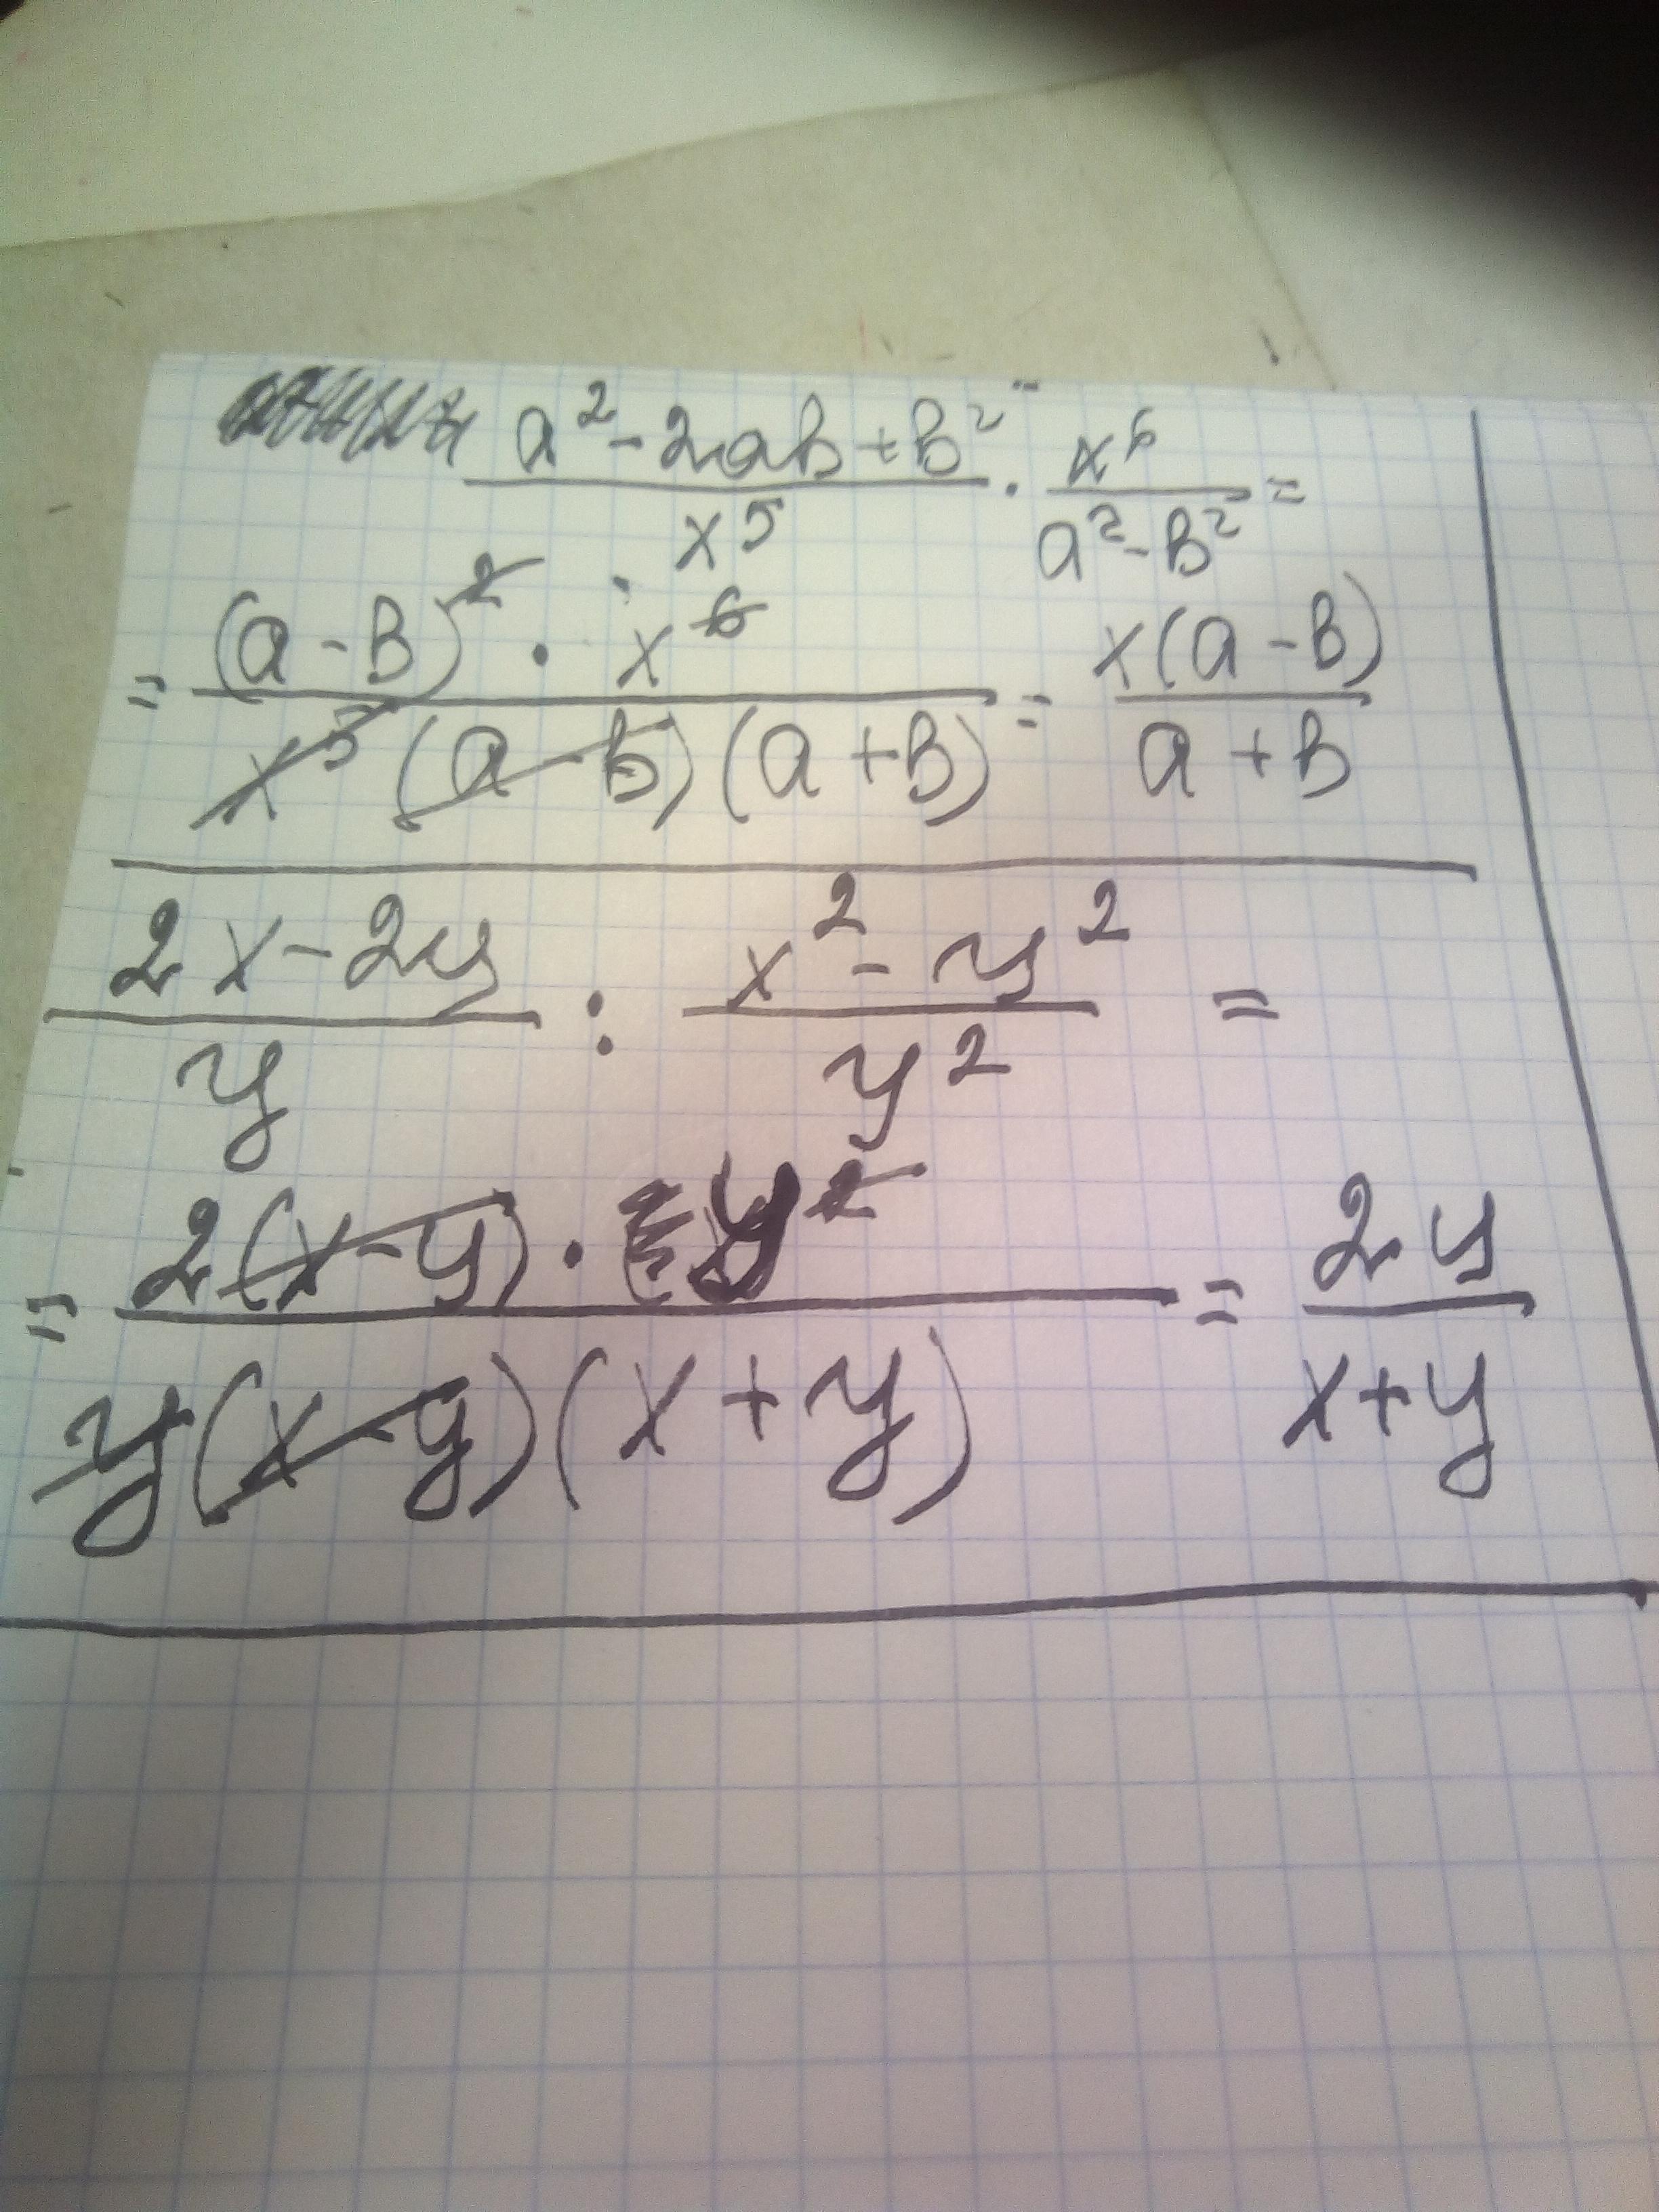 (a² - 2ab + b²)/x⁵ · x⁶/(a² - b²) =
= ((a - b)² · x⁶)/(x⁵(a - b)(a + b)) = x(a - b)/(a + b)
(2x - 2y)/y : (x² - y²)/y² =
= (2(x - y) · y²)/(y(x - y)(x + y)) = 2y/(x + y)